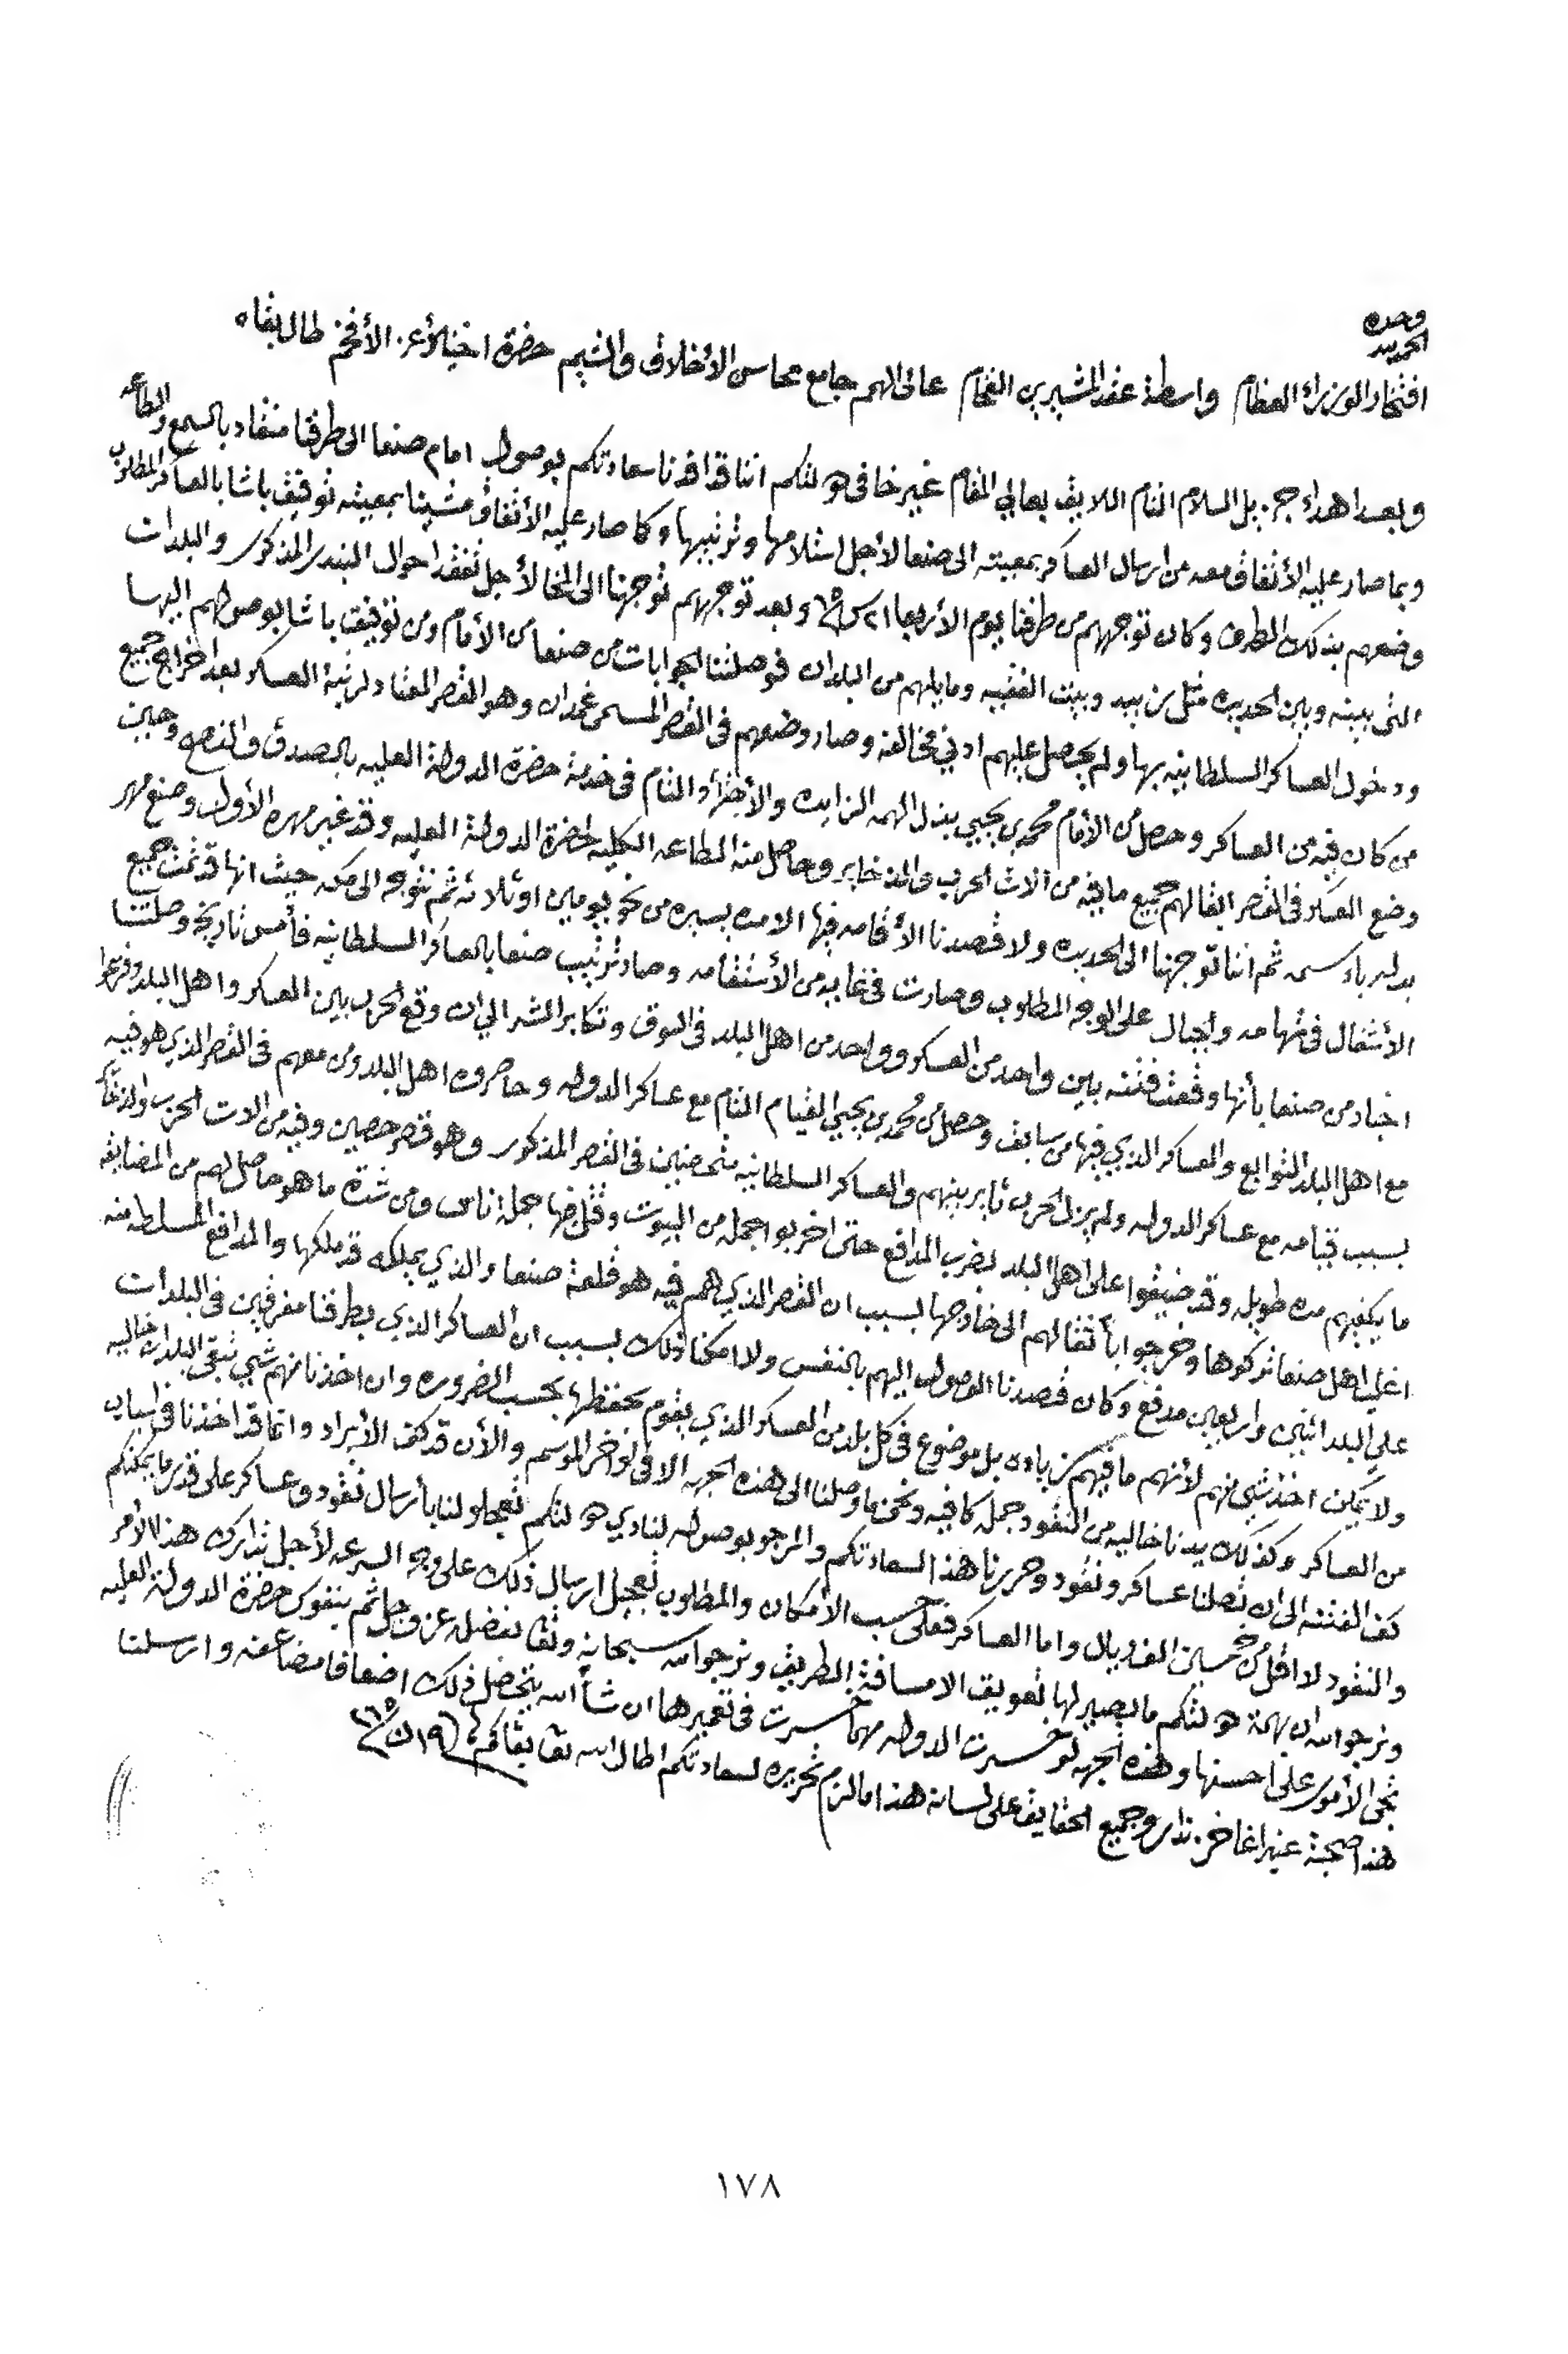 الحمد لله
وحده
افتخار الوزراء العظام واسطة عقد المشيرين الفخام عالي الهمم جامع محاسن الأخلاق والشيم حضرة اخينا الأعز الأفخم طال بقاه
وبعد اهداء جزيل السلام التام اللايق بعالي المقام غير خافي دولتكم اننا قد افدنا سعادتكم بوصول امام صنعا الى طرفنا منقاد بالسمع والطاعه
وبما صار عليه الأتفاق معه من ارسال العساكر بمعيته الى صنعا لأجل استلامها وترتيبها وكما صار عليه الأتفاق مشينا بمعيته توفيق باشا بالعساكر المطلوب
وضعهم بذلك الطرف وكان توجههم من طرفنا يوم الأربعا ٢١ وبعد توجههم توجهنا الى المخا لأجل تفقد احوال البندر المذكور والبلدات
التي بينه وبين الحديده مثل زبيد وبيت الفقيه وما يليهم من البلدان فوصلتنا الجوابات من صنعا من الأمام ومن توفيق باشا بوصولهم اليها
ودخول العساكر السلطانيه بها ولم يحصل عليهم ادني مخالفه وصار وضعهم في القصر المسمى غمدان وهو القصر المعتاد لرتبة العسكر بعد اخراج جميع
من كان فيه من العساكر وحصل من الأمام محمد بن يحيي بذل الهمه الزايده والأجتهاد التام في خدمة حضرة الدولة العليه بالصدق والنصح وحين
وضع العسكر في القصر ابقا لهم جميع ما فيه من الات الحرب والذخاير وحاصل منه الطاعه الكليه لحضرة الدولة العليه وقد غير مهره الأول وصنع مهر
بدله باسمه ثم اننا توجهنا الى الحديده ولا قصدنا الأقامه فيها الا مده يسيره من نحو يومين او ثلاثه ثم نتوجه الى مكه حيث انها قد تمت جميع
الأشغال في تهامه والجبال على الوجه المطلوب وصارت في غايه من الأستقامه وصار ترتيب صنعا بالعساكر السلطانيه فأمس تاريخه وصلتنا
اخبار من صنعا بأنها وقعت فتنه بين واحد من العسكر وواحد من اهل البلد في السوق وتكابر الشر الى ان وقع الحرب بين العسكر واهل البلد وفزعوا
مع اهل البلد التوابع والعساكر الذي فيها من سابق وحصل من محمد بن يحيي القيام التام مع عساكر الدوله وحاصروه اهل البلد ومن معهم في القصر الذي هو فيه
بسبب قيامه مع عساكر الدوله ولم يزل الحرب ثاير بينهم والعساكر السلطانيه متحصنين في القصر المذكور وهو قصر حصين وفيه من الات الحرب والذخاير
ما يكفيهم مده طويله وقد ضيقوا على اهل البلد بضرب المدافع حتى اخربوا جمله من البيوت وقتل فيها جملة اناس ومن شدة ما هو حاصل لهم من المضايقه
اغلب اهل صنعا تركوها وخرجوا بأثقالهم الى خارجها بسبب ان القصر الذي هم فيه هو قلعة صنعا والذي يملكه قد ملكها والمدافع المسلطه منه
على البلد اثنين واربعين مدفع وكان قصدنا الوصول اليهم بالنفس ولا امكنا ذلك بسبب ان العساكر الذي بطرفنا مفرقين في البلدات
ولا يمكن اخذ شيي منهم لأنهم ما فيهم زياده بل موضوع في كل بلد من العسكر الذي يقوم بحفظها بحسب الضروره وان اخذنا منهم شيي تبقى البلدان خاليه
من العساكر وكذلك يدنا خاليه من النقود جمله كافيه ونحن ما وصلنا الى هذه الجهه الا في اواخر الموسم والأن قد كف الأيراد وانما قد اخذنا في اسباب
كف الفتنه الى ان تصلنا عساكر ونقود وحررنا هذا لسعادتكم والمرجو بوصوله لنادي دولتكم تعجلوا لنا بأرسال نقود وعساكر على قدر ما يمكنكم
والنقود لا اقل من خمسين الف ريال واما العساكر فعلى حسب الأمكان والمطلوب تعجيل ارسال ذلك على وجه السرعه لأجل تدارك هذا الأمر
ونرجوا الله ان بهمة دولتكم ما يصير لها تعويق الا مسافة الطريق ونرجوا من الله سبحانه وتعا بفضله عز وجل ثم بنفوس حضرة الدولة العليه
تجي الأمور على احسنها وهذه الجهه لو خسرت الدوله مهما خسرت في تعميرها ان شا الله يتحصل ذلك اضعافا مضاعفه وارسلنا
هذا صحبة عنبر اغا خزندار وجميع الحقايق على لسانه هذا ما لزم تحريره لسعادتكم اطال الله تعا بقاكم ١٩ ن ٢٦٥
١٧٨